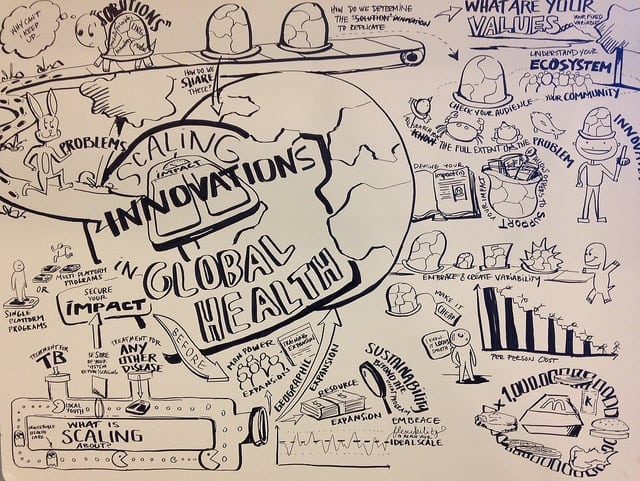 WHY CAN'T I KEEP UP...
"SOLUTIONS"
HOW DO WE DETERMINE
THE "SOLUTION" INNOVATION
TO REPLICATE
WHAT ARE YOUR
VALUES...
YOUR FIXED
VARIABLES
HOW DO WE
SHARE
THESE?
UNDERSTAND YOUR
ECOSYSTEM
YOUR COMMUNITY
CHECK YOUR AUDIENCE
PROBLEMS
KNOW
THE FULL EXTENT OF THE PROBLEM
SCALING
IMPACT
INNOVATIONS
IN
GLOBAL
HEALTH
DEFINE YOUR
impact(s)
YOUR IMPACT
SUPPORT
EMBRACE & CREATE VARIABILITY
MULTI PLATFORM
PROGRAMS
OR
SINGLE
PLATFORM
PROGRAMS
SECURE
YOUR
IMPACT
BEFORE
MAKE IT
CHEAP
PER PERSON COST
TREATMENT FOR
TB
BE SURE
OF YOUR
SYSTEM
BEFORE SCALING
TREATMENT FOR
ANY
OTHER
DISEASE
MAN POWER
EXPANSION
TRAINING
EXPANSION
GEOGRAPHIC
EXPANSION
RESOURCE
EXPANSION
SUSTAINABILITY
OF PROGRAM
EMBRACE
flexibility
TO REACH YOUR
IDEAL SCALE
LOCAL YOUTH
HEALTH
CARE
WHAT IS
SCALING
ABOUT?
x1,000,000
M
K